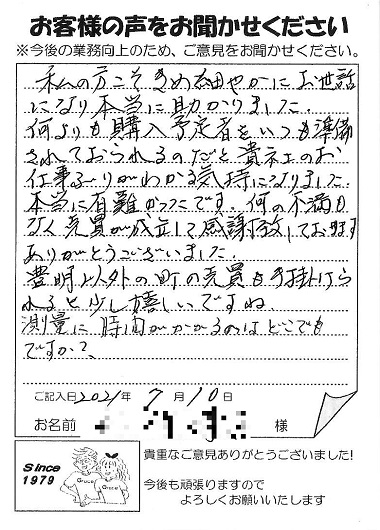 お客様の声をお聞かせください
※今後の業務向上のため、ご意見をお聞かせください。
私の方こそきめ細やかにお世話
になり本当に助かりました
何よりも購入予定者をいつも準備
されておられるのだと貴社のお
仕事ぶりがわかる気持になりました.
本当に有難かったです. 何の不満も
なく売買が成立して感謝致しております
ありがとうございました.
豊明以外の町の売買も手掛けら
れると少し嬉しいですね
測量に時間がかかるのはどこでも
ですか?、
ご記入日2021年 7 月 10 日
お名前 様
Since
1979
Grace
Grace
貴重なご意見ありがとうございました!
今後も頑張りますので
よろしくお願いいたします